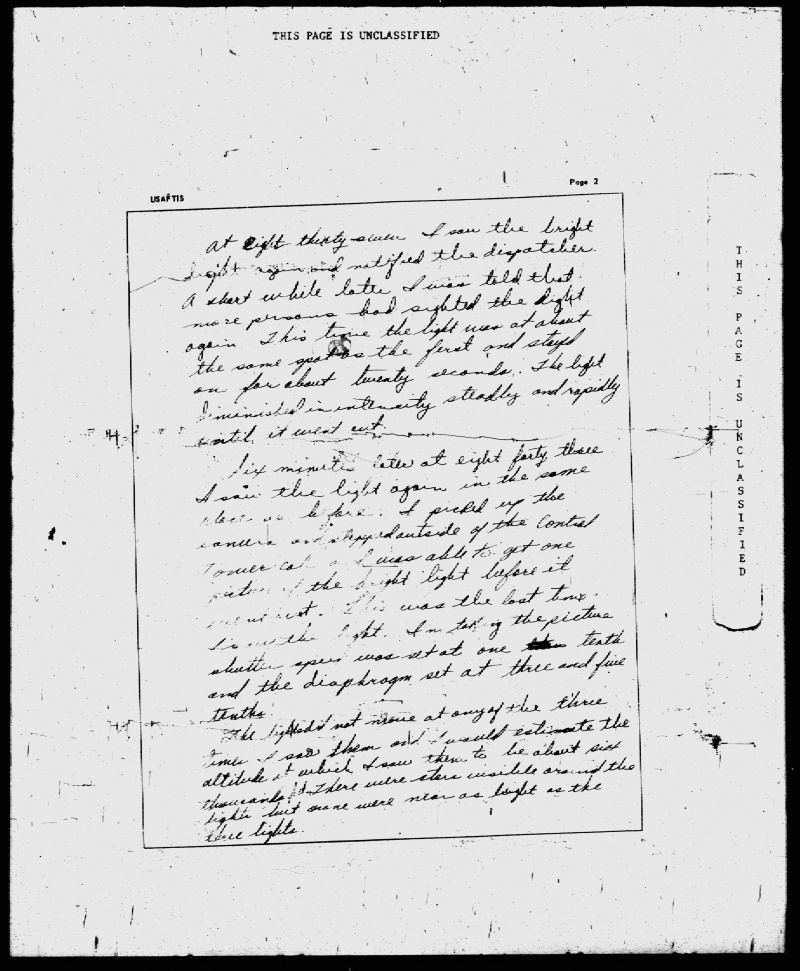 THIS PAGE IS UNCLASSIFIED
USAFTIS
Page 2
At eight thirty-seven I saw the bright
light again and notified the dispatcher.
A short while later I was told that
more persons had sighted the light
again. This time the light was at about
the same spot as the first and stayed
on for about twenty seconds. The light
diminished in intensity steadily and rapidly
until it went out.
Six minutes later at eight forty three
I saw the light again in the same
place as before. I picked up the
camera and stepped outside of the Control
Tower cab and I was able to get one
picture of the bright light before it
went out. This was the last time
I saw the light. In taking the picture
shutter speed was set at one tenth
and the diaphragm set at three and five
tenths.
The lights did not move at any of the three
times I saw them and I would estimate the
altitude at which I saw them to be about six
thousand. There were stars visible around the
lights but none were near as bright as the
three lights.
THIS PAGE IS UNCLASSIFIED